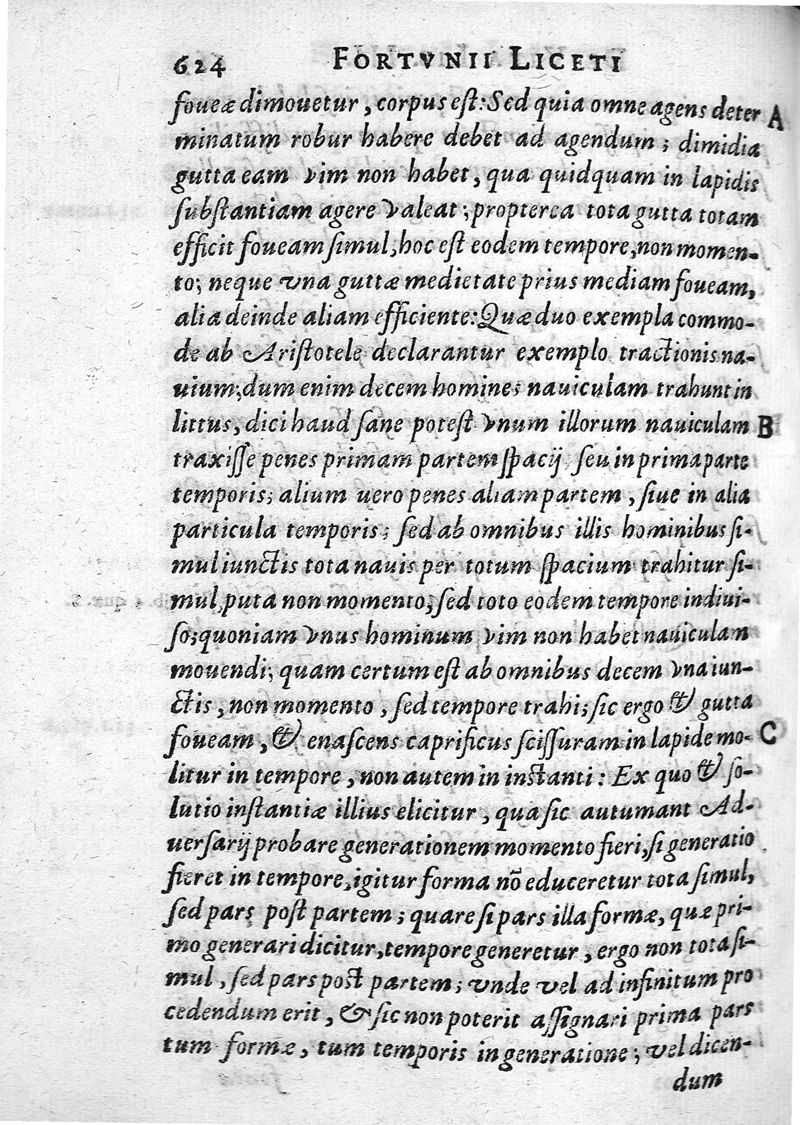 624 FORTVNII LICETI
foueæ dimouetur, corpus eſt: Sed quia omne agens deter A
minatum robur habere debet ad agendum; dimidia
gutta eam vim non habet, qua quidquam in lapidis
ſubſtantiam agere valeat; propterea tota gutta totam
efficit foueam ſimul, hoc eſt eodem tempore, non momen-
to; neque vna guttæ medietate prius mediam foueam,
alia deinde aliam efficiente: Quæ duo exempla commo-
de ab Ariſtotele declarantur exemplo tractionis na-
uium; dum enim decem homines nauiculam trahunt in
littus, dici haud ſane poteſt vnum illorum nauiculam B
traxiſſe penes primam partem ſpacij, ſeu in prima parte
temporis; alium uero penes aliam partem, ſiue in alia
particula temporis; ſed ab omnibus illis hominibus ſi-
mul iunctis tota nauis per totum ſpacium trahitur ſi-
mul, puta non momento, ſed toto eodem tempore indiui-
ſo; quoniam vnus hominum vim non habet nauiculam
mouendi; quam certum eſt ab omnibus decem vna iun-
ctis, non momento, ſed tempore trahi; ſic ergo & gutta
foueam, & enaſcens caprificus ſciſſuram in lapide mo- C
litur in tempore, non autem in inſtanti: Ex quo & ſo-
lutio inſtantiæ illius elicitur, qua ſic autumant Ad-
uerſarij probare generationem momento fieri, ſi generatio
fieret in tempore, igitur forma nõ educeretur tota ſimul,
ſed pars poſt partem; quare ſi pars illa formæ, quæ pri-
mo generari dicitur, tempore generetur, ergo non tota ſi-
mul, ſed pars poſt partem; vnde vel ad infinitum pro
cedendum erit, & ſic non poterit aſſignari prima pars
tum formæ, tum temporis in generatione; vel dicen-
dum